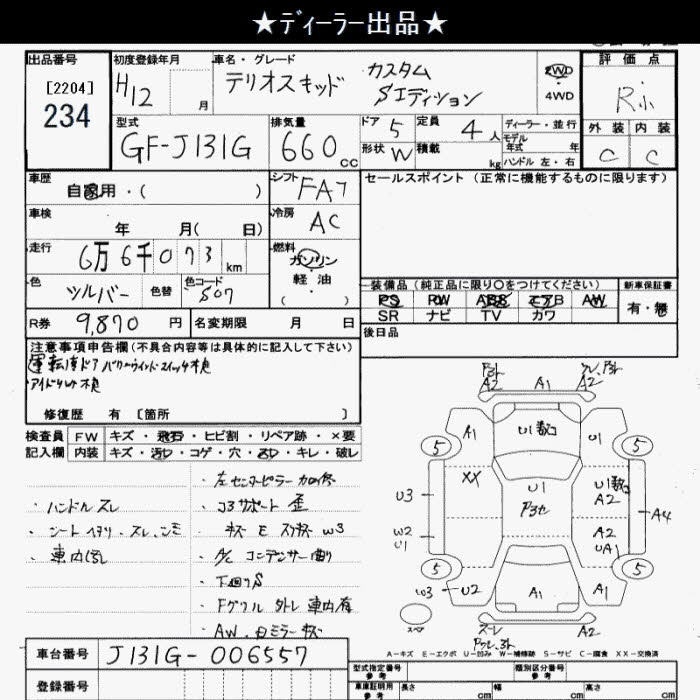 ★ディーラー出品★
出品番号
[2204]
234
初度登録年月
H12
月
車名・グレード
テリオスキッド カスタム
Sエディション
2WD
4WD
評価点
R
外装 内装
C C
型式
GF-J131G
排気量
660 cc
ドア 5
形状 W
定員 4 人
積載 kg
ディーラー・並行
モデル年式 年
ハンドル 左・右
車歴
自家用・( )
シフト FA7
セールスポイント (正常に機能するものに限ります)
車検
年 月( 日)
冷房 AC
走行
6万6千073 km
燃料
ガソリン
軽油
( )
色
シルバー
色替
色コード
S07
装備品 (純正品に限り○をつけてください)
新車保証書
PS PW ABS エアB AW
SR ナビ TV カワ
有・無
R券 9,870 円
名変期限 月 日
後日品
注意事項申告欄(不具合内容等は具体的に記入して下さい)
運転席ドア パワーウインドスイッチ不良
アイドリング不良
修復歴 有 [箇所 ]
検査員 FW キズ・飛石・ヒビ割・リペア跡・×要
記入欄 内装 キズ・汚れ・コゲ・穴・
・キレ・破レ
・ハンドルスレ
・シート ヘタリ・スレ、シミ
・車内汚
・左センターピラー加修
・コアサポート 歪
W3
・A/C コンデンサー曲り
・下廻りS
・Fグリル 外レ 車内有
・AW、白ミラーキズ
A2
A1
A2
5
A1
U1数コ
U1
5
XX
U1
U1数コ
A2
U3
A4
W2
U1
A2
UA1
5
5
W3
U2
A1
A1
スペア
A2
A-キズ E-エクボ U-凹み W-補修跡 S-サビ C-腐食 XX-交換済
車台番号 J131G-006557
登録番号
型式指定番号
参考
類別区分番号
参考
車庫証明用
参考
長さ cm
幅 cm
高さ cm